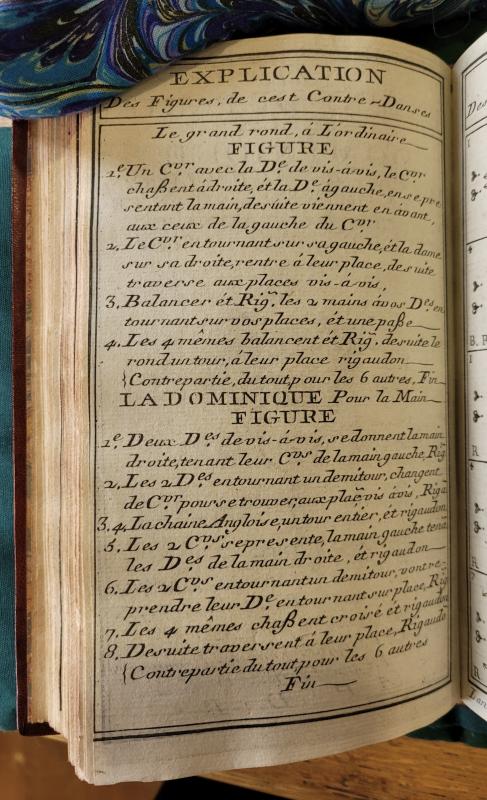 EXPLICATION
Des Figures, de cest Contre-Danses
Le grand rond, á L'ordinaire
FIGURE
1.e Un C.vr avec la D.e de vis-á-vis, le C.vr
chaßent á droite, ét la D.e á gauche, en se pre
sentant la main, de suite viennent en avant,
aux ceux de la gauche du C.vr
2. Le C.vr en tournant sur sa gauche, ét la dame
sur sa droite, rentre á leur place, de suite
traverse aux places vis-á-vis,
3. Balancer ét Rig. les 2 mains á vos D.es en
tournant sur vos places, ét une paße
4. Les 4 mêmes balancent ét Rig. de suite le
rond un tour, á leur place rigaudon
{Contrepartie, du tout, pour les 6 autres, Fin
LA DOMINIQUE Pour la Main
FIGURE
1.e Deux D.es de vis-á-vis, se donnent la main
droite, tenant leur C.vrs de la main gauche, Rig
2. Les 2 D.es en tournant un demi tour, changent
de C.vr pour se trouver, aux place vis á vis, Rig
3.4. La chaine Angloise, un tour entier, ét rigaudon
5. Les 2 C.vrs se represente, la main gauche tenant
les D.es de la main droite, ét rigaudon
6. Les 2 C.vrs en tournant un demi tour, vont re-
prendre leur D.e en tournant sur place, Rig
7. Les 4 mêmes chaßent croisé ét rigaudon
8. De suite traversent á leur place, Rigaudo
{Contrepartie du tout, pour les 6 autres
Fin